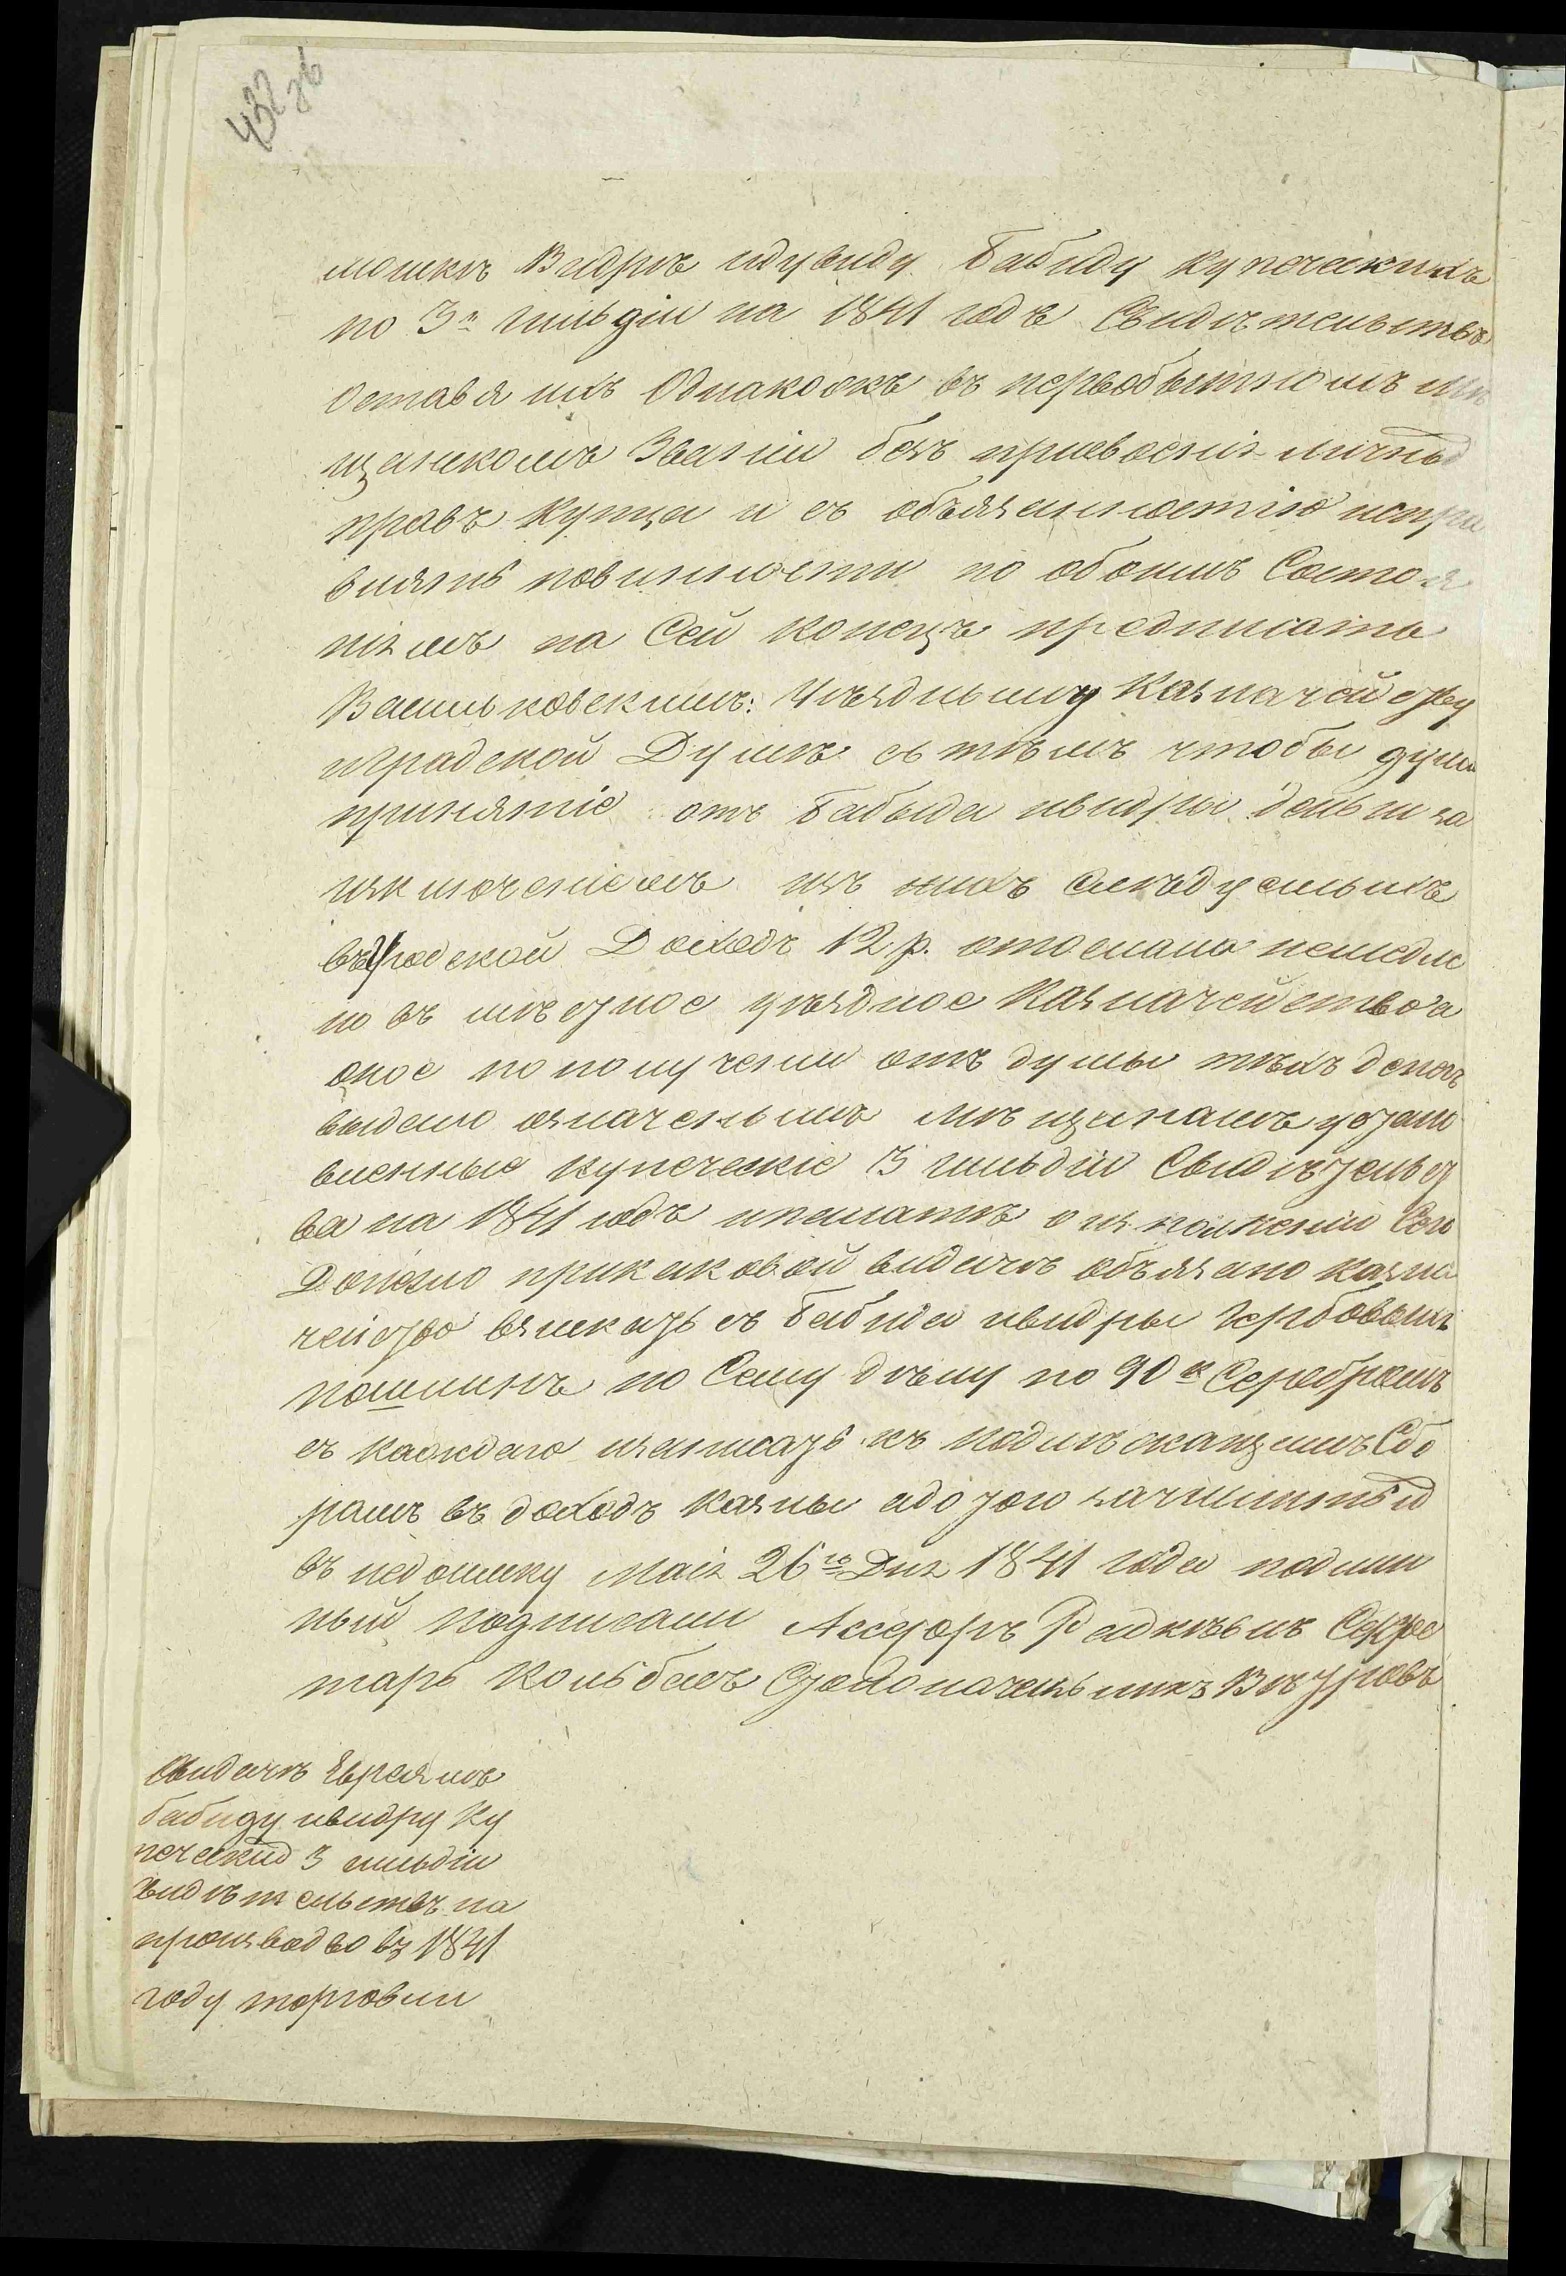 432 об
мошкъ Видръ идувиду Бабиду купеческихъ
по 3й гильдіи на 1841 годъ Свидѣтельствъ
оставя ихъ Однакожъ въ первобытномъ мѣ
щанскомъ Званіи безъ присвоенія личныхъ
правъ купца и съ обязанностію испра
влять повинности по обоимъ Состоя
ніямъ на Сей конецъ предписать
Васильковскимъ: Уѣздному Казначейству
иградской Думѣ съ тѣмъ чтобы дума
принятіе отъ Бабыда ивидры деньги за
изключеніемъ изъ нихъ слѣдуемыхъ
въ городской Доходъ 12 р. отослала немедле
но въ мѣстное уѣздное Казначейство а
оное по полученіи отъ думы тѣхъ денегъ
выдало означенымъ мѣщанамъ устано
вленные купеческіе 3 гильдіи Свидѣтельст
ва на 1841 годъ ипалатѣ о исполненіи Сего
Донесло при каковой видачѣ обязано казна
чейство взискать съ Бабида ивидры гербовыхъ
пошлинъ по Сему дѣлу по 90 к Серебромъ
съ каждаго изаписать къ подлѣжащимъ Сбо
рамъ въ доходъ казны адотого зачислить ихъ
въ недоимку маія 26го Дня 1841 года подлин
ный подписали Ассесоръ Радкѣвъ Секре
тарь Кольбасъ Столоначальникъ Вѣтровъ
Овидачѣ Евреямъ
бабиду ивидру Ку
печескихъ 3 гильдіи
Свидѣтельствъ на
производво въ 1841
году торговли